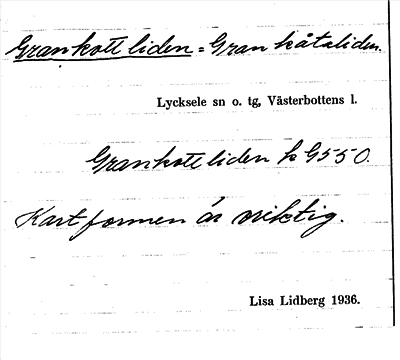 Grankott liden = Gran kåtaliden.
Lycksele sn o. tg, Västerbottens l.
Grankottliden k G550.
Kartformen är oriktig.
Lisa Lidberg 1936.